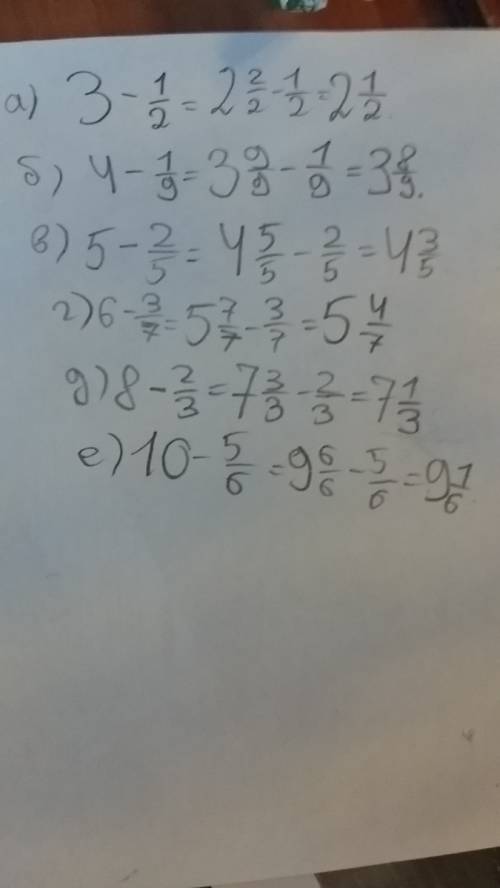 а) 3 - 1/2 = 2 2/2 - 1/2 = 2 1/2.
б) 4 - 1/9 = 3 9/9 - 1/9 = 3 8/9.
в) 5 - 2/5 = 4 5/5 - 2/5 = 4 3/5
г) 6 - 3/7 = 5 7/7 - 3/7 = 5 4/7
д) 8 - 2/3 = 7 3/3 - 2/3 = 7 1/3
е) 10 - 5/6 = 9 6/6 - 5/6 = 9 1/6.